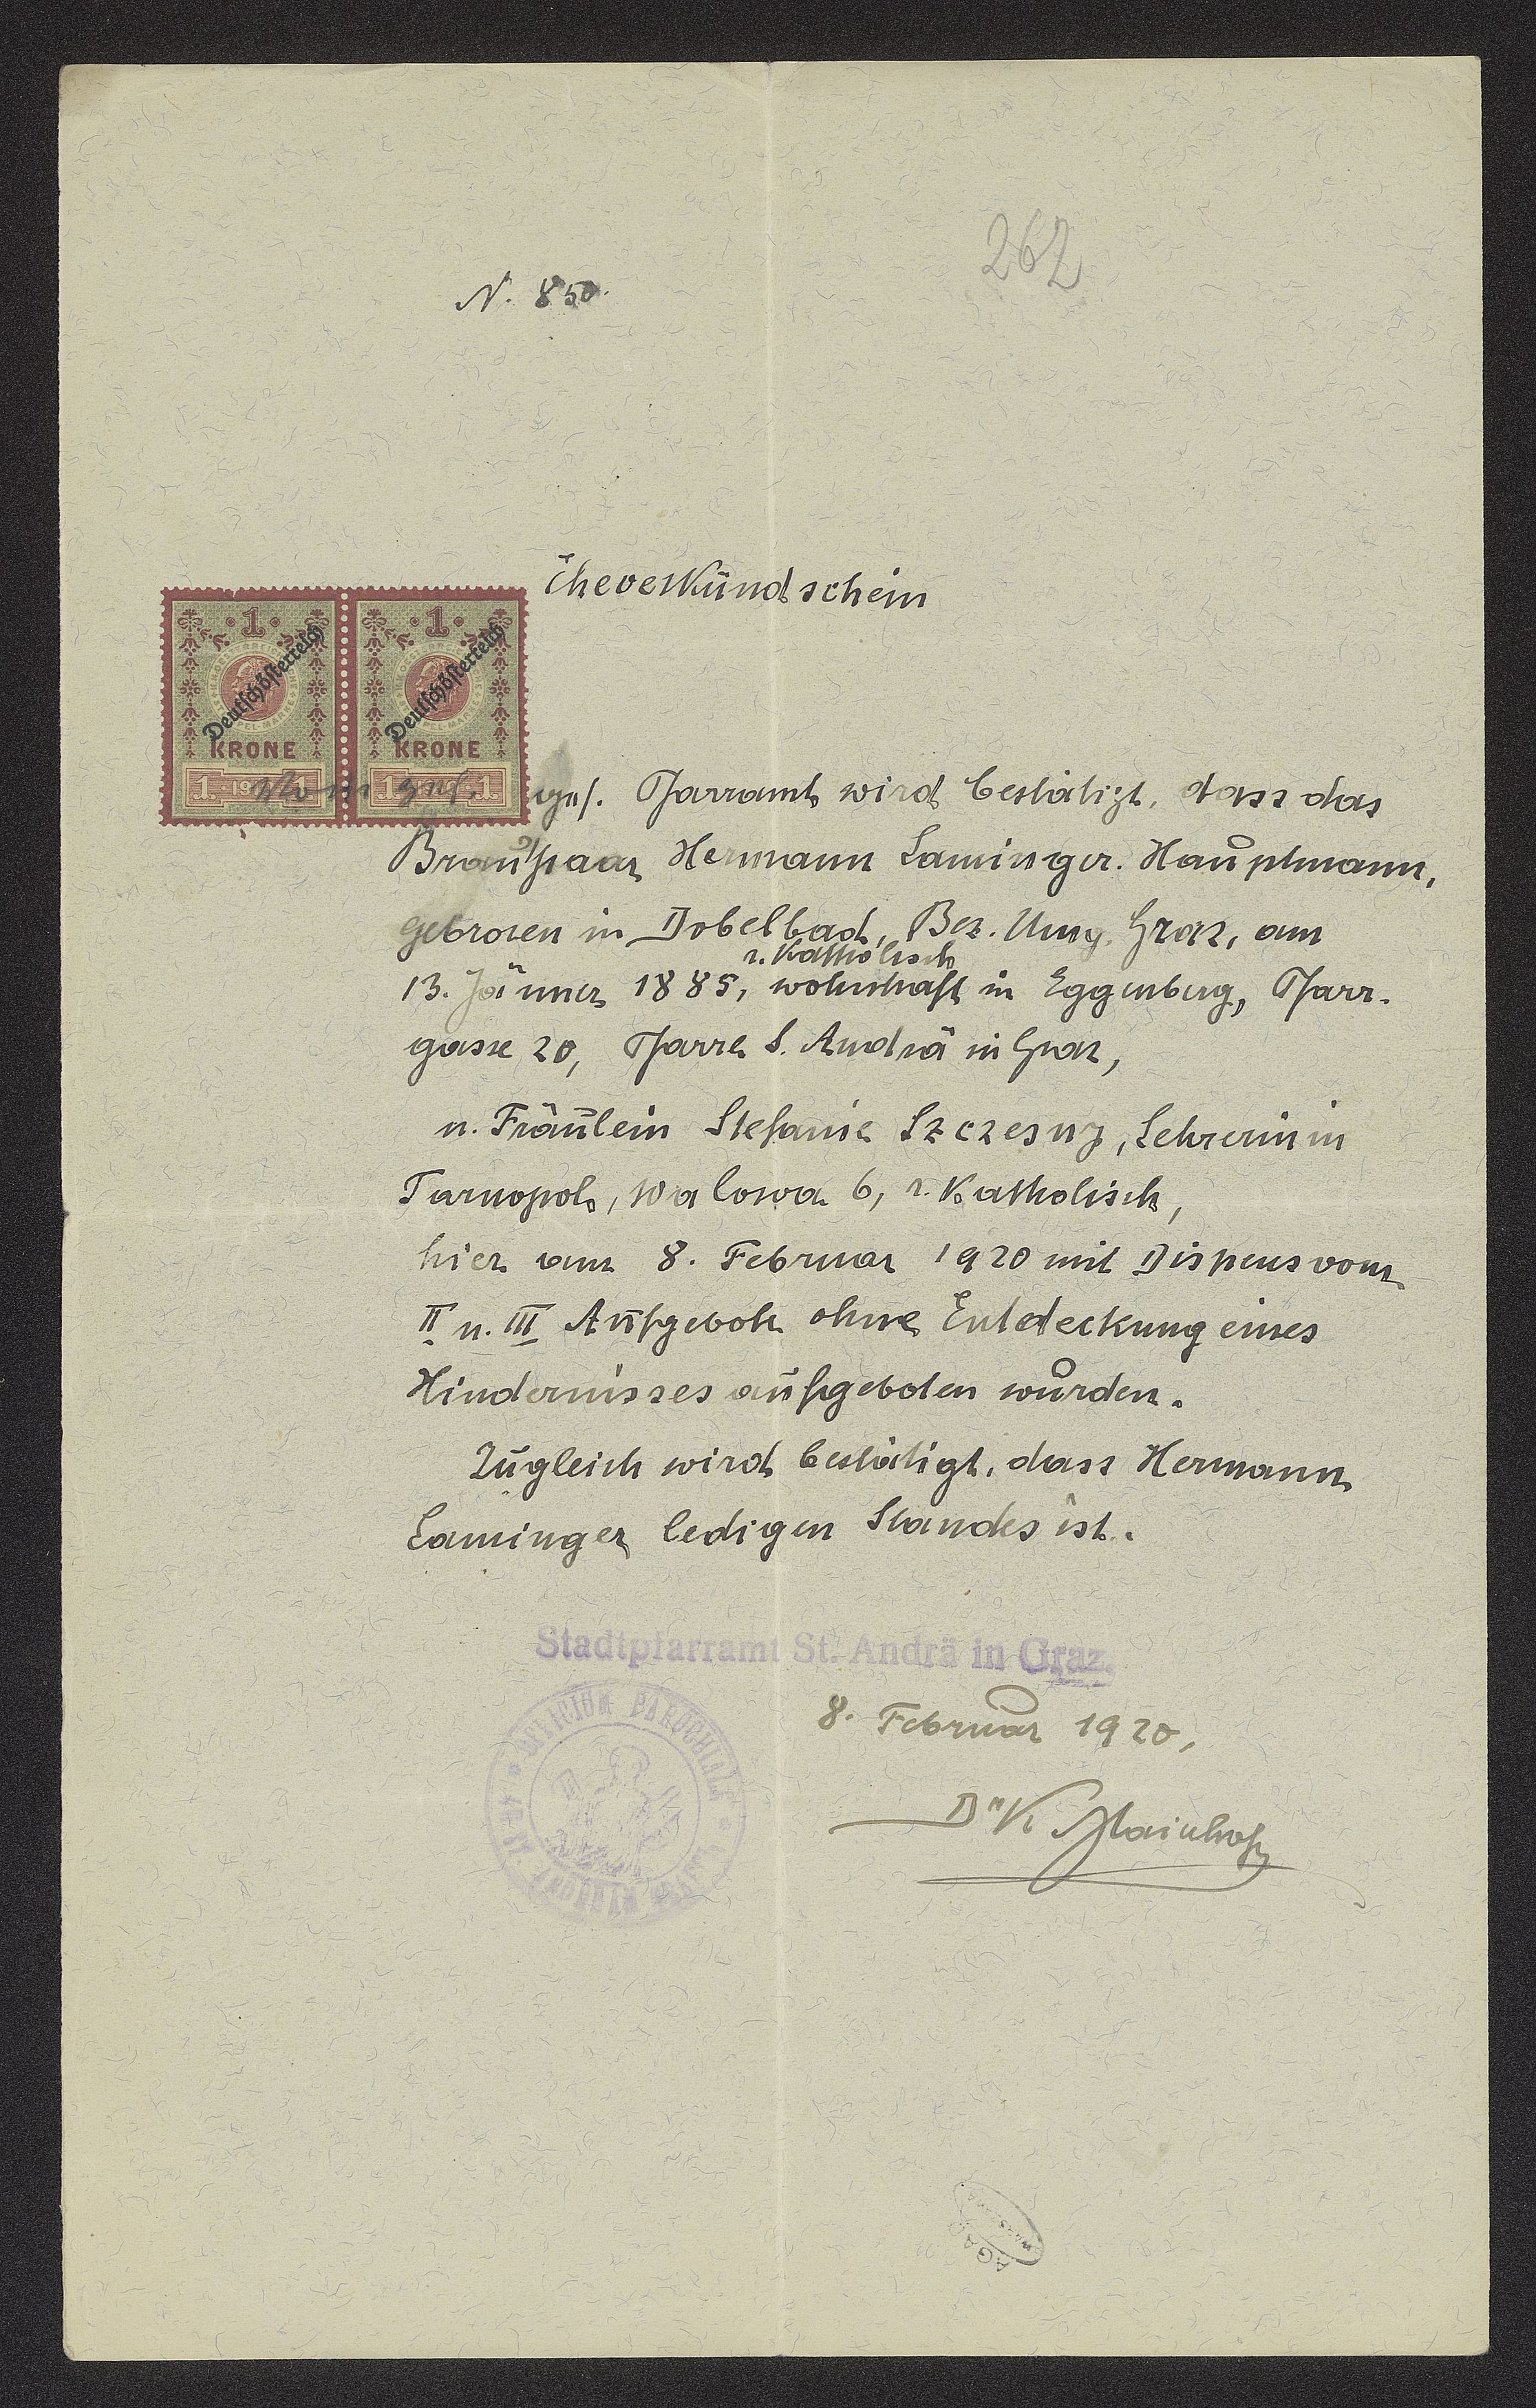 262
N. 850.
Eheverkündschein
1 1
Deutschösterreich Deutschösterreich
KRONE KRONE
Vom gef. gef. Pfarramt wird bestätigt, dass das
Brautpaar Hermann Laminger. Hauptmann,
geboren in Dobelbad, Bez. Umg. Graz, am
r. katholisch
13. Jänner 1885, wohnhaft in Eggenberg, Pfarr-
gasse 20, Pfarre S. Andrä in Graz,
u. Fräulein Stefanie Szczesny, Lehrerin in
Tarnopol, Walowa 6, r. katholisch,
hier am 8. Februar 1920 mit Dispens vom
II u. III Aufgebote ohne Entdeckung eines
Hindernisses aufgeboten wurden.
Zugleich wird bestätigt, dass Hermann
Laminger ledigen Standes ist.
Stadtpfarramt St. Andrä in Graz.
8. Februar 1920,
OFFICIUM PAROCHIALE
AGAD